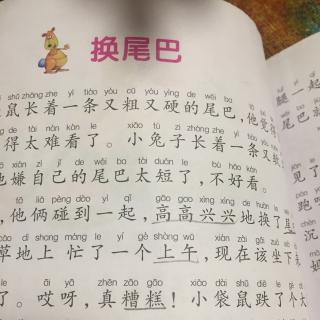 换尾巴
shǔ zhǎng zhe yì tiáo yòu cū yòu yìng de wěi ba
鼠长着一条又粗又硬的尾巴,他觉
de tài nán kàn le xiǎo tù zi zhǎng zhe yì tiáo
得太难看了。小兔子长着一条又软
xián zì jǐ de wěi ba tài duǎn le bù hǎo kàn
他嫌自己的尾巴太短了,不好看。
tā liǎ pèng dào yì qǐ gāo gāo xìng xìng de huàn le
,他俩碰到一起,高高兴兴地换了
cǎo dì shang máng le yí gè shàng wǔ xiàn zài gāi zuò xià
草地上忙了一个上午,现在该坐下来
le āi yā zhēn zāo gāo xiǎo dài shǔ diē le gè dà
了。哎呀,真糟糕!小袋鼠跌了个大
腿一起
尾巴
见了
跑
沉